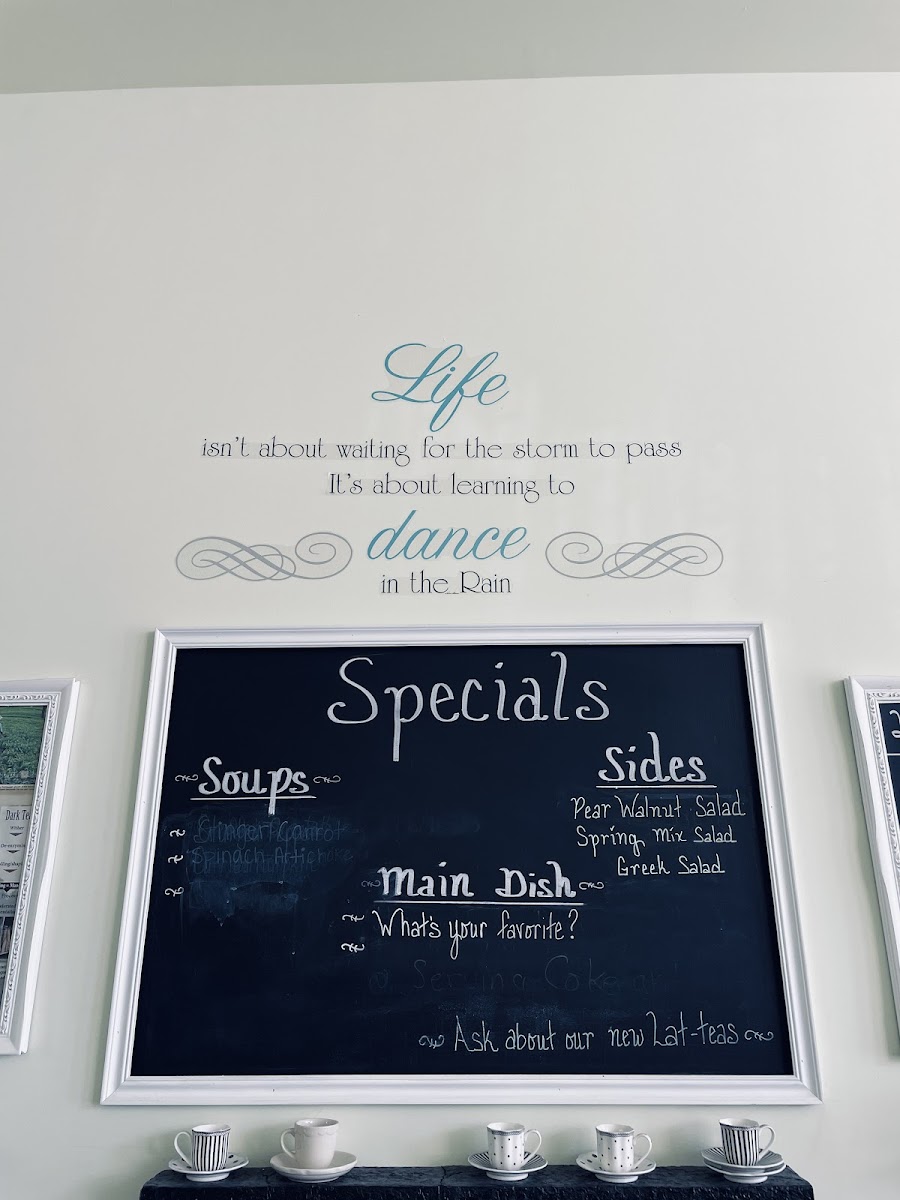 Life
isn't about waiting for the storm to pass
It's about learning to
dance
in the Rain
Specials
Soups
Spinach Artichoke
Sides
Pear Walnut Salad
Spring Mix Salad
Greek Salad
Main Dish
What's your favorite?
Serving Coke
Ask about our new Lat-teas
Dark Te